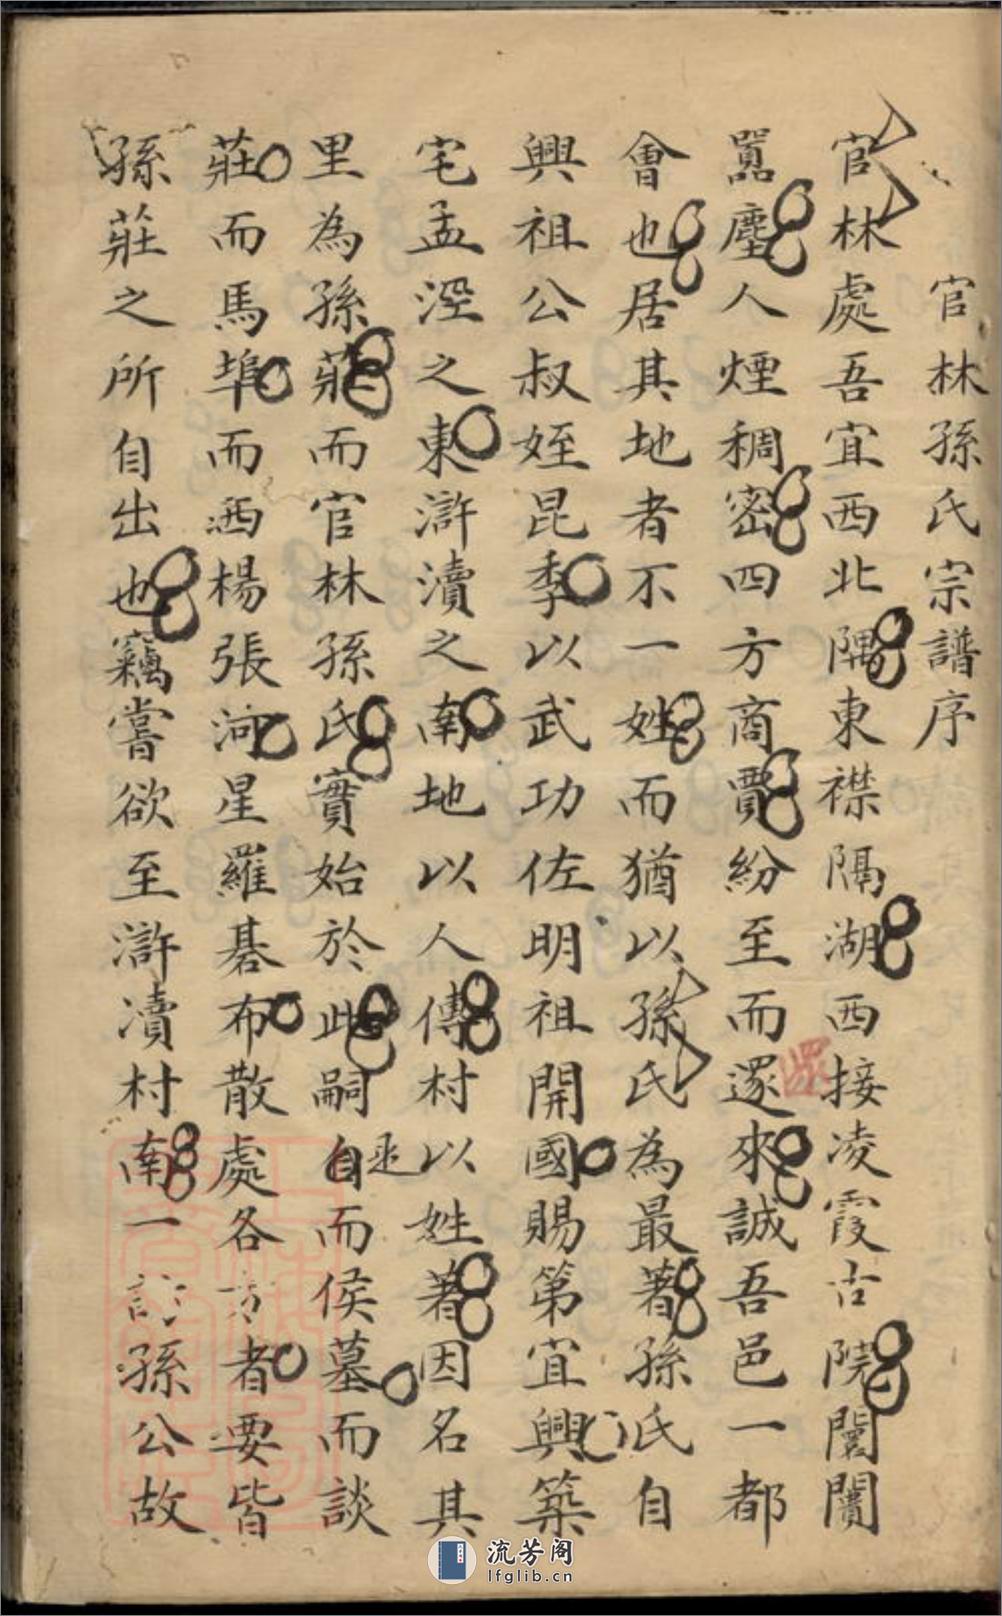 官林孫氏宗譜序
官林處吾宜西北隅東襟隔湖西接凌霞古院闤闠
囂塵人煙稠密四方商賈紛至而遝來誠吾邑一都
會也居其地者不一姓而猶以孫氏為最著孫氏自
興祖公叔姪昆季以武功佐明祖開國賜第宜興築
宅孟涇之東滸瀆之南地以人傳村以姓著因名其
里為孫莊而官林孫氏實始於此嗣自是而侯墓而談
莊而馬埠而洒楊張河星羅碁布散處各方者要皆
孫莊之所自出也竊嘗欲至滸瀆村南一訪孫公故
流芳阁
lfglib.cn